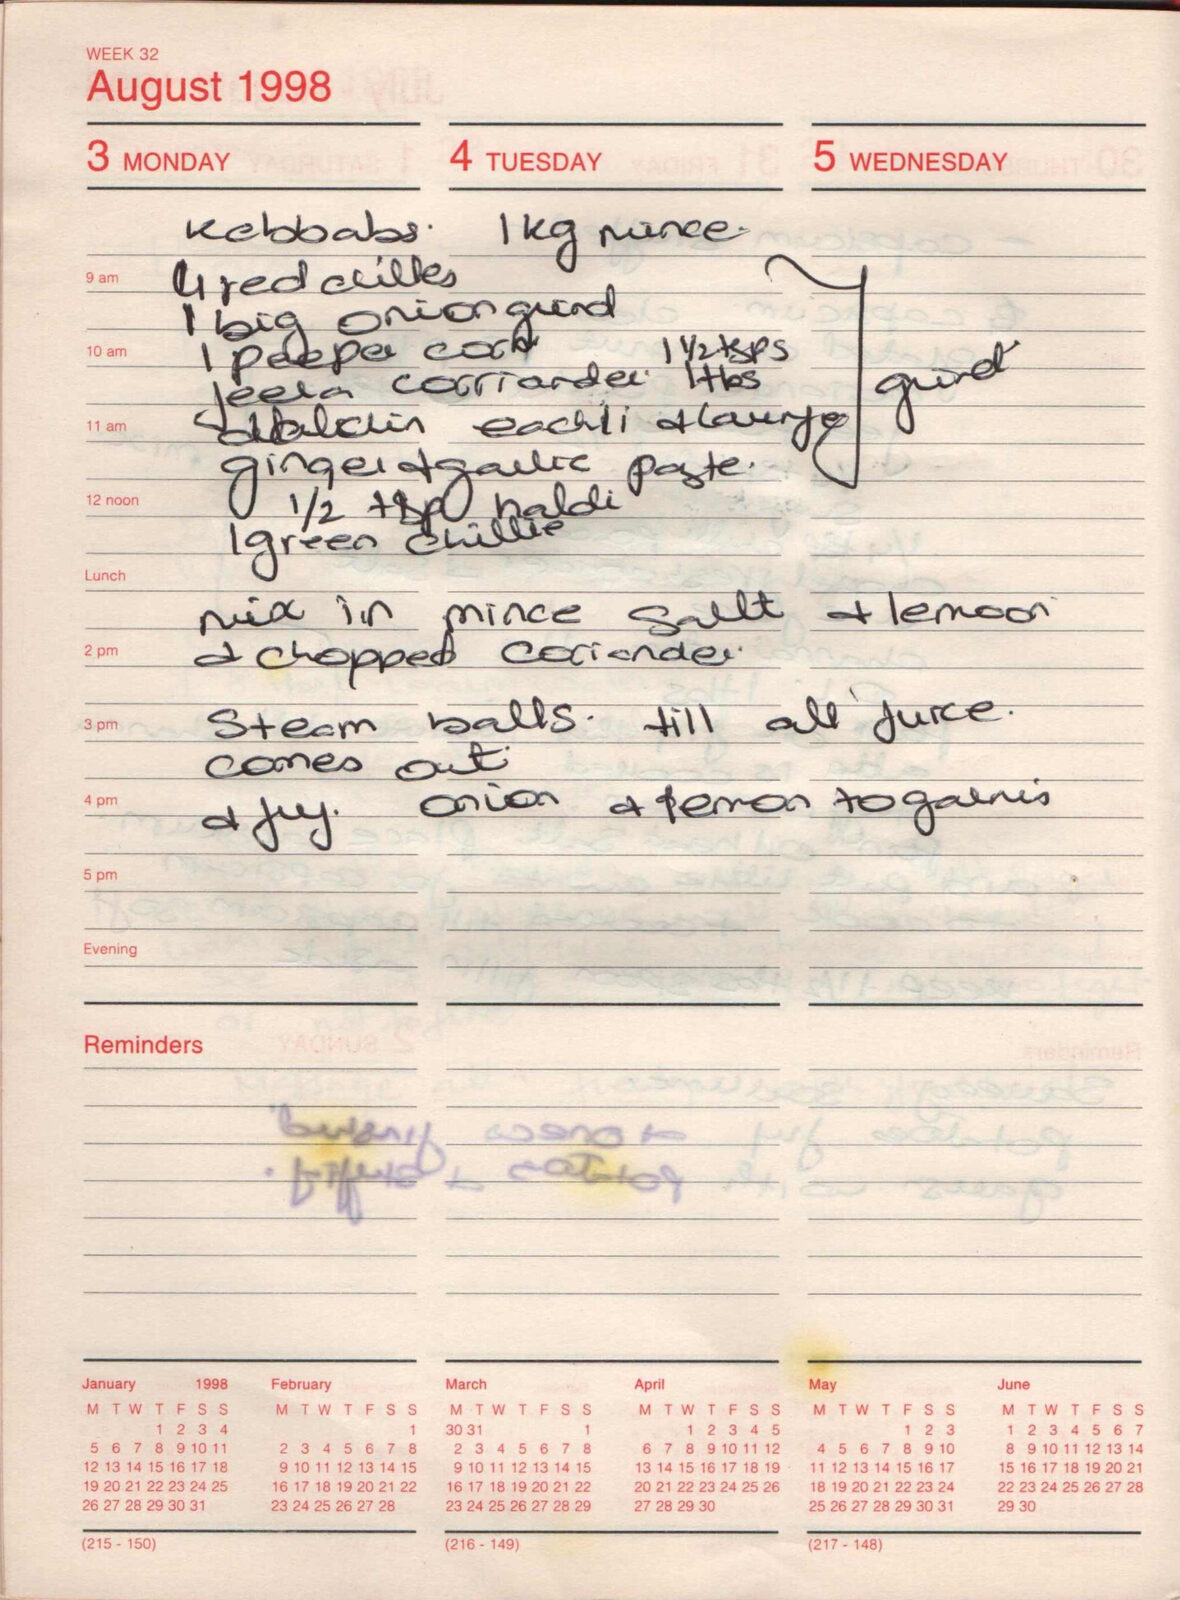 WEEK 32
August 1998
3 MONDAY
4 TUESDAY
5 WEDNESDAY
Kebbabs. 1 kg mince.
9 am
4 red chilles
1 big onion grind
10 am
1 peeper corn 1 1/2 tsps
Jeera corriander 1 tbs
11 am
eachli + laung
grind
ginger + garlic paste.
12 noon
1/2 tsp haldi
1 green chillie
Lunch
mix in mince Sallt + lemoon
2 pm
+ chopped coriander
3 pm
Steam balls. till all juice.
comes out
4 pm
+ fry. onion + lemon to garnis
5 pm
Evening
Reminders
January 1998
M T W T F S S
1 2 3 4
5 6 7 8 9 10 11
12 13 14 15 16 17 18
19 20 21 22 23 24 25
26 27 28 29 30 31
February
M T W T F S S
1
2 3 4 5 6 7 8
9 10 11 12 13 14 15
16 17 18 19 20 21 22
23 24 25 26 27 28
March
M T W T F S S
30 31 1
2 3 4 5 6 7 8
9 10 11 12 13 14 15
16 17 18 19 20 21 22
23 24 25 26 27 28 29
April
M T W T F S S
1 2 3 4 5
6 7 8 9 10 11 12
13 14 15 16 17 18 19
20 21 22 23 24 25 26
27 28 29 30
May
M T W T F S S
1 2 3
4 5 6 7 8 9 10
11 12 13 14 15 16 17
18 19 20 21 22 23 24
25 26 27 28 29 30 31
June
M T W T F S S
1 2 3 4 5 6 7
8 9 10 11 12 13 14
15 16 17 18 19 20 21
22 23 24 25 26 27 28
29 30
(215 - 150)
(216 - 149)
(217 - 148)